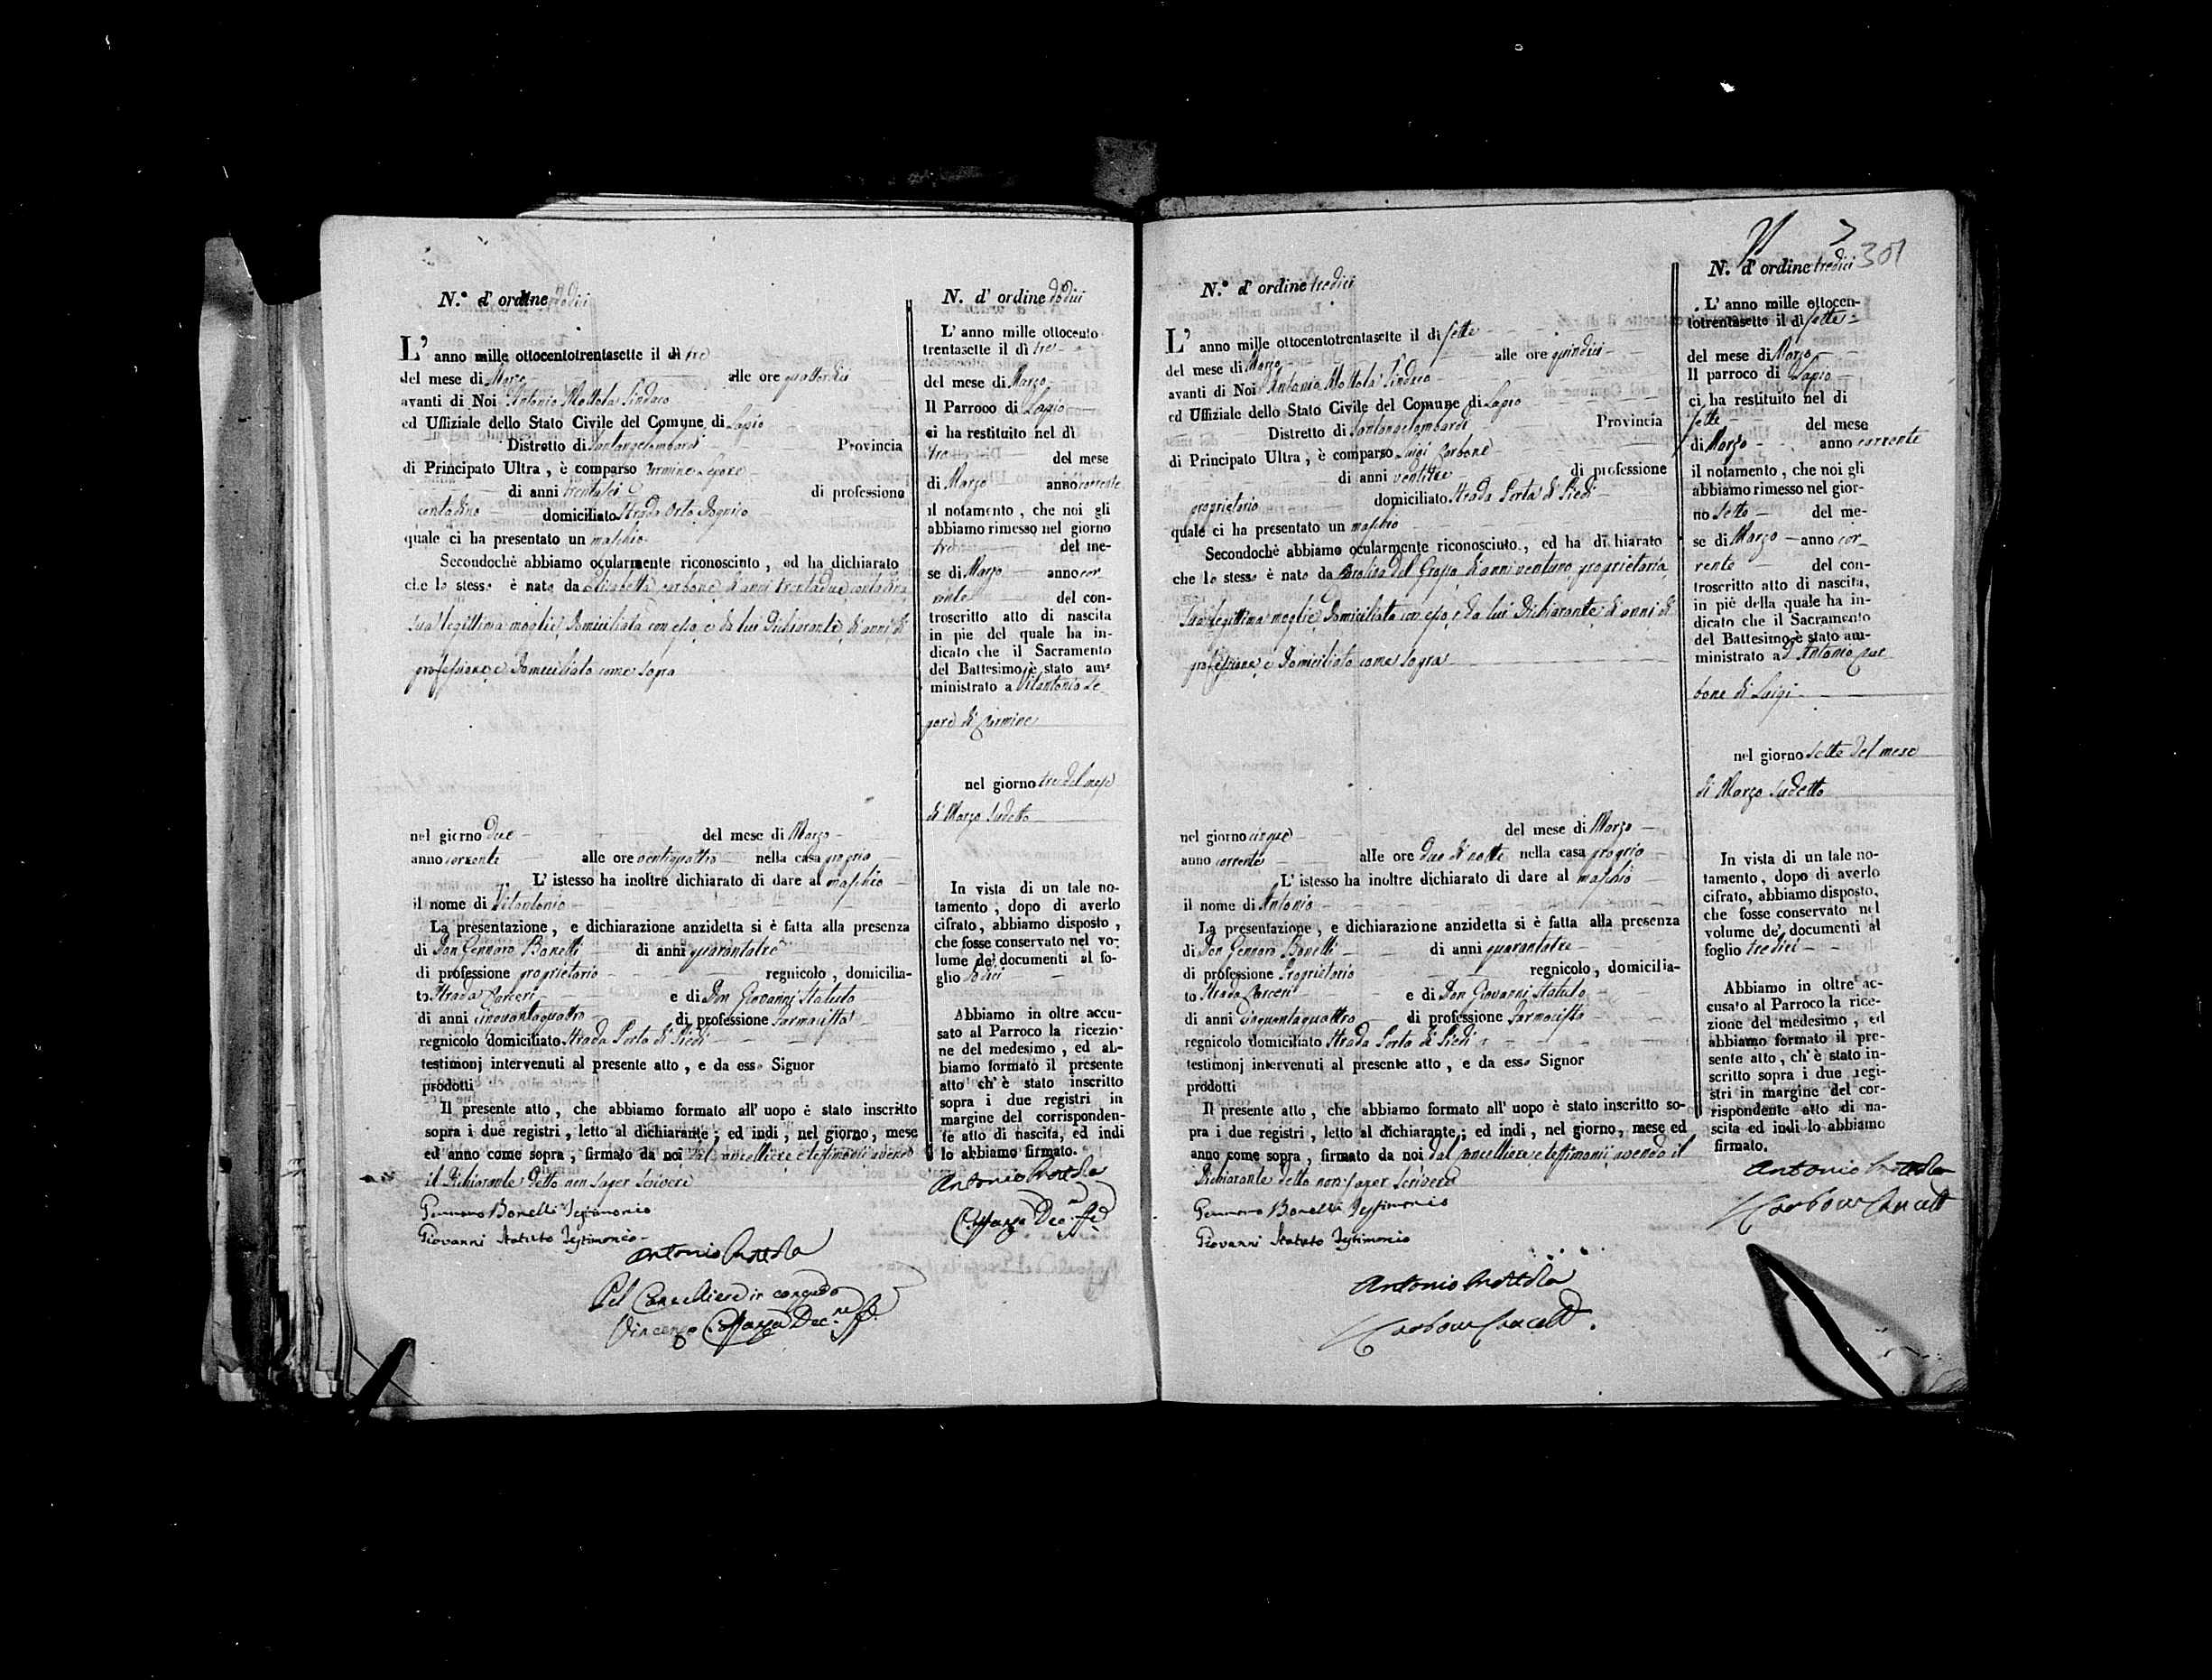 N.° d'ordine dodici
L' anno mille ottocentotrentasette il dì tre
del mese di Marzo alle ore quattordici
avanti di Noi Antonio Mottola Sindaco
ed Uffiziale dello Stato Civile del Comune di Lapio
Distretto di Santangelombardi Provincia
di Principato Ultra, è comparso Carmine Lepore
di anni trentasei di professione
contadino domiciliato Strada Orto
quale ci ha presentato un maschio
Secondochè abbiamo ocularmente riconosciuto, ed ha dichiarato
che lo stesso è nato da Elisabetta Carbone di anni trentadue contadina
sua legittima moglie, domiciliata con esso, e da lui Dichiarante di anni di
professione, e domiciliato come sopra
nel giorno due del mese di Marzo
anno corrente alle ore ventiquattro nella casa propria
L' istesso ha inoltre dichiarato di dare al maschio
il nome di Vitantonio
La presentazione, e dichiarazione anzidetta si è fatta alla presenza
di Don Gennaro Bonelli di anni quarantatre
di professione proprietario regnicolo, domicilia-
to Strada Carceri e di Don Giovanni Statuto
di anni cinquantaquattro di professione Farmacista
regnicolo domiciliato Strada Porta di Piedi
testimonj intervenuti al presente atto, e da esso Signor
prodotti
Il presente atto, che abbiamo formato all' uopo è stato inscritto
sopra i due registri, letto al dichiarante; ed indi, nel giorno, mese
ed anno come sopra, firmato da noi dal cancelliere e testimonii avendo
il Dichiarante detto non saper scrivere
Gennaro Bonelli Testimonio
Giovanni Statuto Testimonio
Antonio Mottola
Pel Cancelliere in congedo
Vincenzo Dec.ne ff.
N. d' ordine dodici
L' anno mille ottocento-
trentasette il dì tre
del mese di Marzo
Il Parroco di Lapio
ci ha restituito nel dì
tre del mese
di Marzo anno corrente
il notamento, che noi gli
abbiamo rimesso nel giorno
tre del me-
se di Marzo anno cor-
rente del con-
troscritto atto di nascita
in pie del quale ha in-
dicato che il Sacramento
del Battesimo è stato am-
ministrato a Vitantonio Le-
pore di Carmine
nel giorno tre del mese
di Marzo sudetto
In vista di un tale no-
tamento, dopo di averlo
cifrato, abbiamo disposto,
che fosse conservato nel vo-
lume de' documenti al fo-
glio dodici
Abbiamo in oltre accu-
sato al Parroco la ricezio-
ne del medesimo, ed ab-
biamo formato il presente
atto ch' è stato inscritto
sopra i due registri in
margine del corrisponden-
te atto di nascita, ed indi
lo abbiamo firmato.
Antonio Mottola
Dec.ne ff.
N.° d' ordine tredici
L' anno mille ottocentotrentasette il dì sette
del mese di Marzo alle ore quindici
avanti di Noi Antonio Mottola Sindaco
ed Uffiziale dello Stato Civile del Comune di Lapio
Distretto di Santangelombardi Provincia
di Principato Ultra, è comparso Luigi Carbone
di anni ventitre di professione
proprietario domiciliato Strada Porta di Piedi
quale ci ha presentato un maschio
Secondochè abbiamo ocularmente riconosciuto, ed ha dichiarato
che lo stesso è nato da Carolina del Grosso di anni ventuno, proprietaria,
sua legittima moglie, domiciliata con esso, e da lui Dichiarante, di anni di
professione, e domiciliato come sopra
nel giorno cinque del mese di Marzo
anno corrente alle ore due di notte nella casa propria
L' istesso ha inoltre dichiarato di dare al maschio
il nome di Antonio
La presentazione, e dichiarazione anzidetta si è fatta alla presenza
di Don Gennaro Bonelli di anni quarantatre
di professione Proprietario regnicolo, domicilia-
to Strada Carceri e di Don Giovanni Statuto
di anni cinquantaquattro di professione Farmacista
regnicolo domiciliato Strada Porta di Piedi
testimonj intervenuti al presente atto, e da esso Signor
prodotti
Il presente atto, che abbiamo formato all' uopo è stato inscritto so-
pra i due registri, letto al dichiarante; ed indi, nel giorno, mese ed
anno come sopra, firmato da noi dal cancelliere e testimonii avendo il
Dichiarante detto non saper scrivere
Gennaro Bonelli Testimonio
Giovanni Statuto Testimonio
Antonio Mottola
Carbone Cancell.
301
N. d' ordine tredici
L' anno mille ottocen-
totrentasette il dì sette
del mese di Marzo
Il parroco di Lapio
ci ha restituito nel di
sette del mese
di Marzo anno corrente
il notamento, che noi gli
abbiamo rimesso nel gior-
no sette del me-
se di Marzo anno cor-
rente del con-
troscritto atto di nascita,
in piè della quale ha in-
dicato che il Sacramento
del Battesimo è stato am-
ministrato a D. Antonio Car-
bone di Luigi
nel giorno sette del mese
di Marzo sudetto
In vista di un tale no-
tamento, dopo di averlo
cifrato, abbiamo disposto,
che fosse conservato nel
volume de' documenti al
foglio tredici
Abbiamo in oltre ac-
cusato al Parroco la rice-
zione del medesimo, ed
abbiamo formato il pre-
sente atto, ch' è stato in-
scritto sopra i due regi-
stri in margine del cor-
rispondente atto di na-
scita ed indi lo abbiamo
firmato.
Antonio Mottola
Carbone Cancell